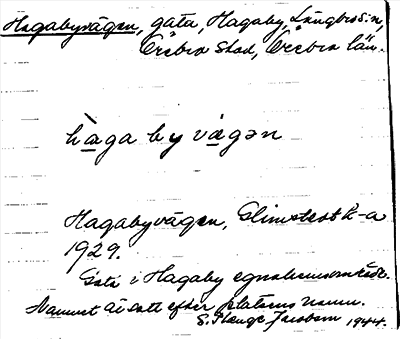 Hagabyvägen, gata, Hagaby, Längbro s:n,
Örebro stad, Örebro län.
hàga by vägən
Hagabyvägen, Glimstedt k-a
1929.
Gata i Hagaby egnahemsområde.
Namnet är satt efter platsens namn.
S. Plænge Jacobson 1944.